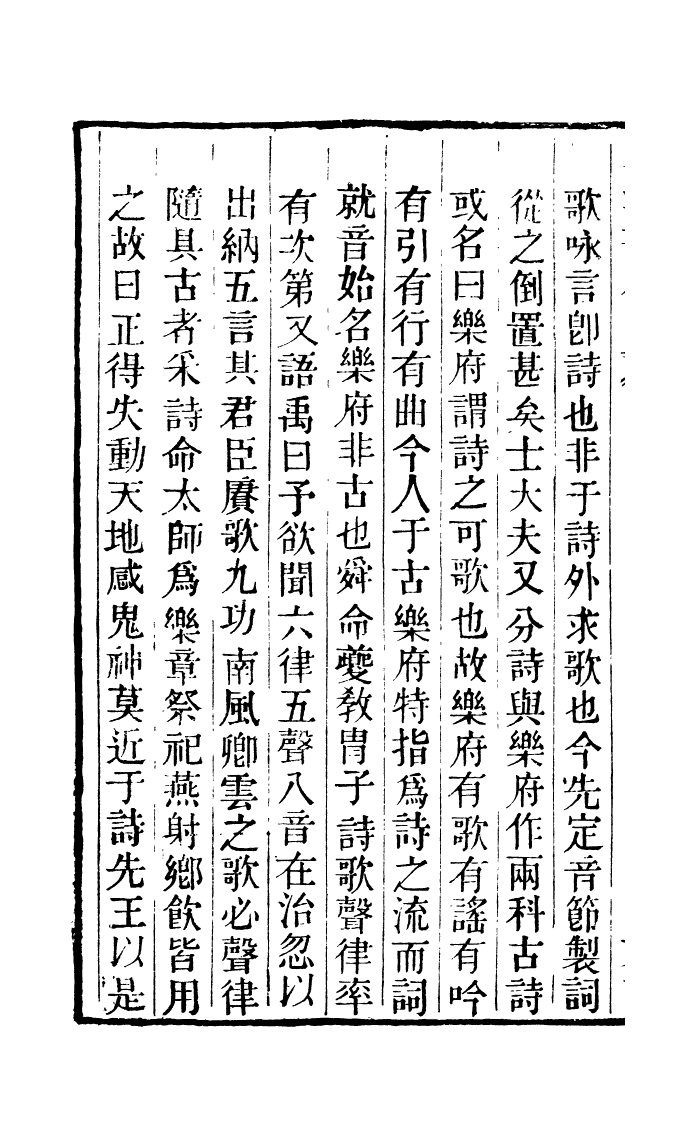 歌咏言卽詩也非于詩外求歌也今先定音節製詞
從之倒置甚矣士大夫又分詩與樂府作兩科古詩
或名曰樂府謂詩之可歌也故樂府有歌有謠有吟
有引有行有曲今人于古樂府特指爲詩之流而詞
就音始名樂府非古也舜命夔敎胄子詩歌聲律率
有次第又語禹曰予欲聞六律五聲八音在治忽以
出納五言其君臣賡歌九功南風卿雲之歌必聲律
隨具古者采詩命太師爲樂章祭祀燕射鄉飮皆用
之故曰正得失動天地感鬼神莫近于詩先王以是